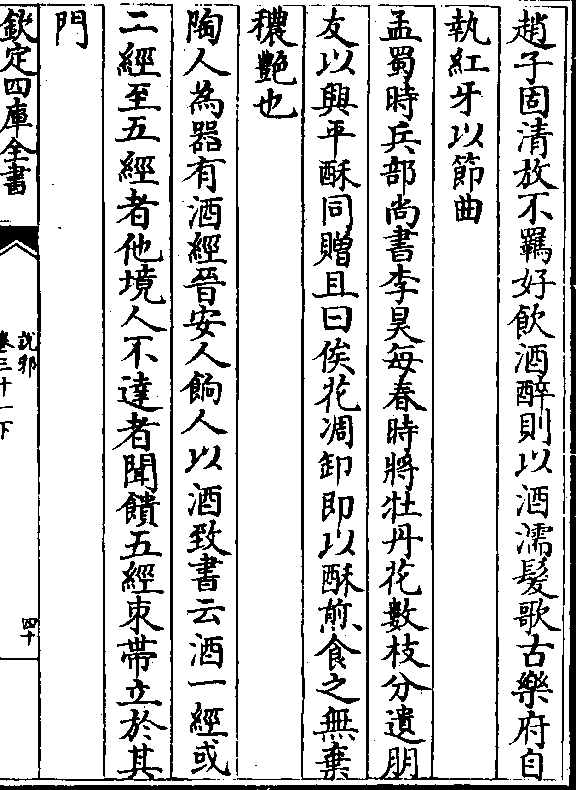 趙子固清放不羈好飲酒醉則以酒濡髮歌古樂府自
執紅牙以節曲
孟蜀時兵部尚書李昊每春時將牡丹花數枝分遺朋
友以興平酥同贈且曰俟花凋卸即以酥煎食之無棄
穠艷也
陶人為器有酒經晉安人餉人以酒致書云酒一經或
二經至五經者他境人不達者聞饋五經束帶立於其
門
欽定四庫全書
說郛
卷三十一下
四十